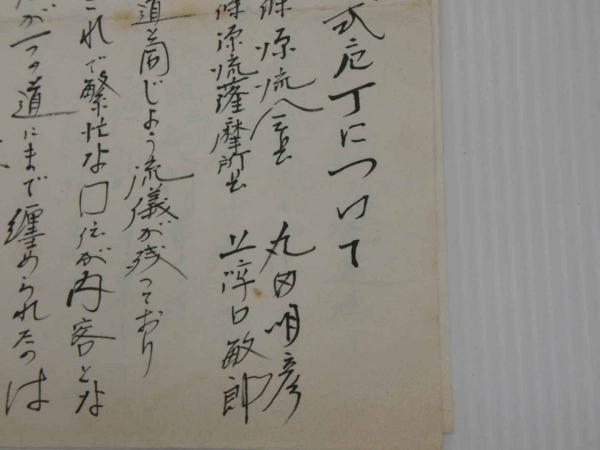 式庖丁について
條源流八 丸田明彦
條源流薩摩所 上 口敏郎
道と同じよう流儀が残っており
これで繁忙な口伝が内容とな
が一つの道にまで纏められたのは